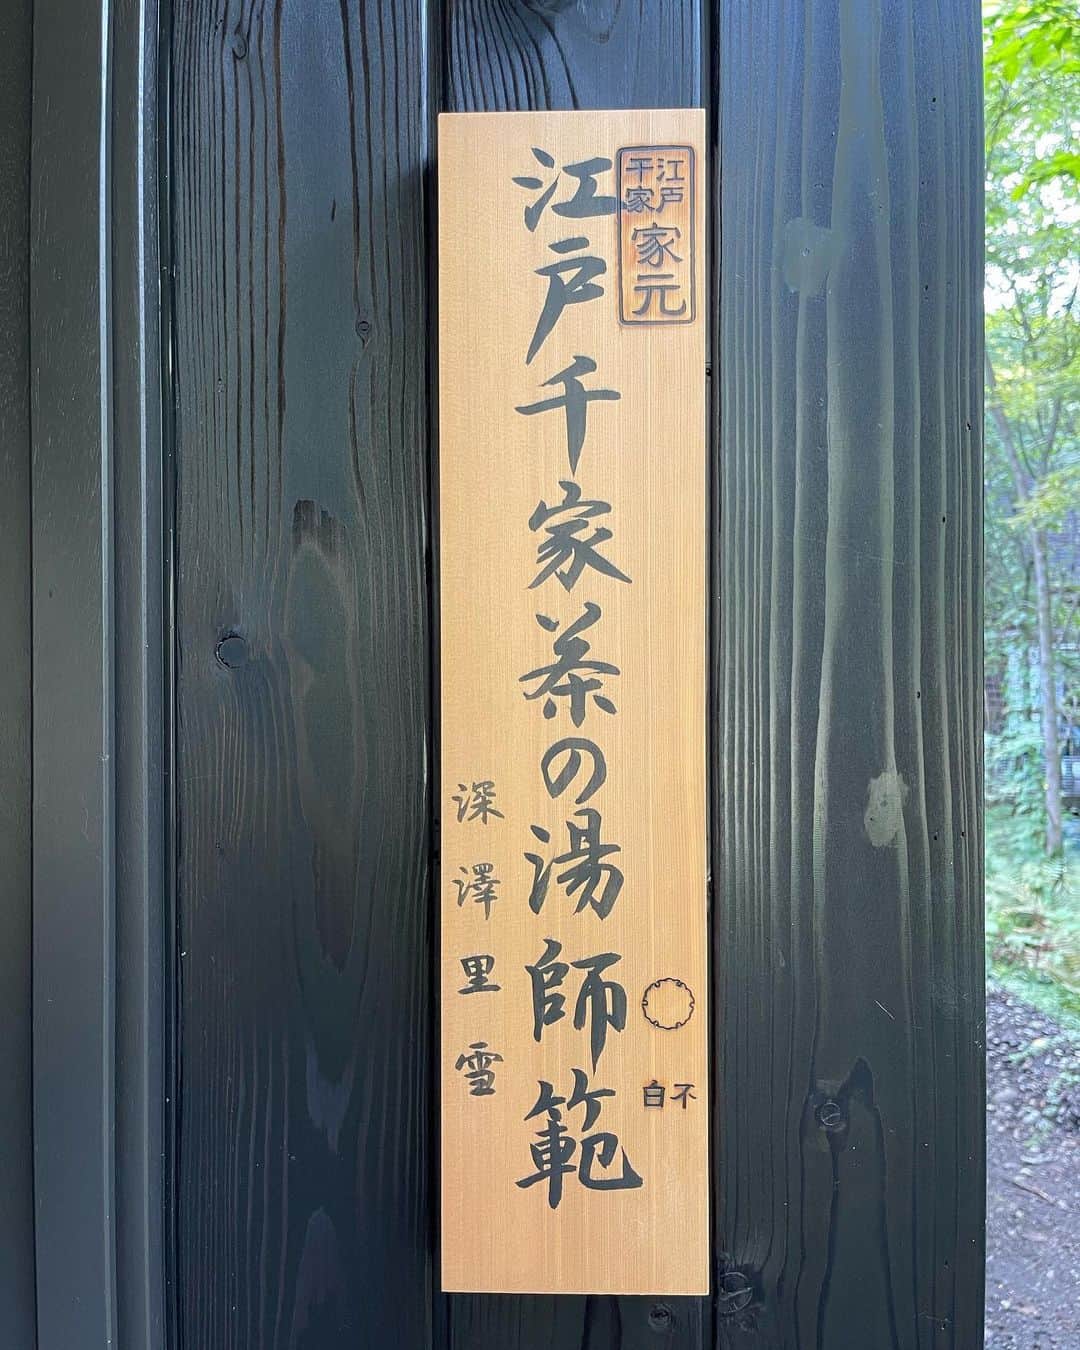 江戸
千家
家元
江戸千家茶の湯師範
不白
深澤里雪